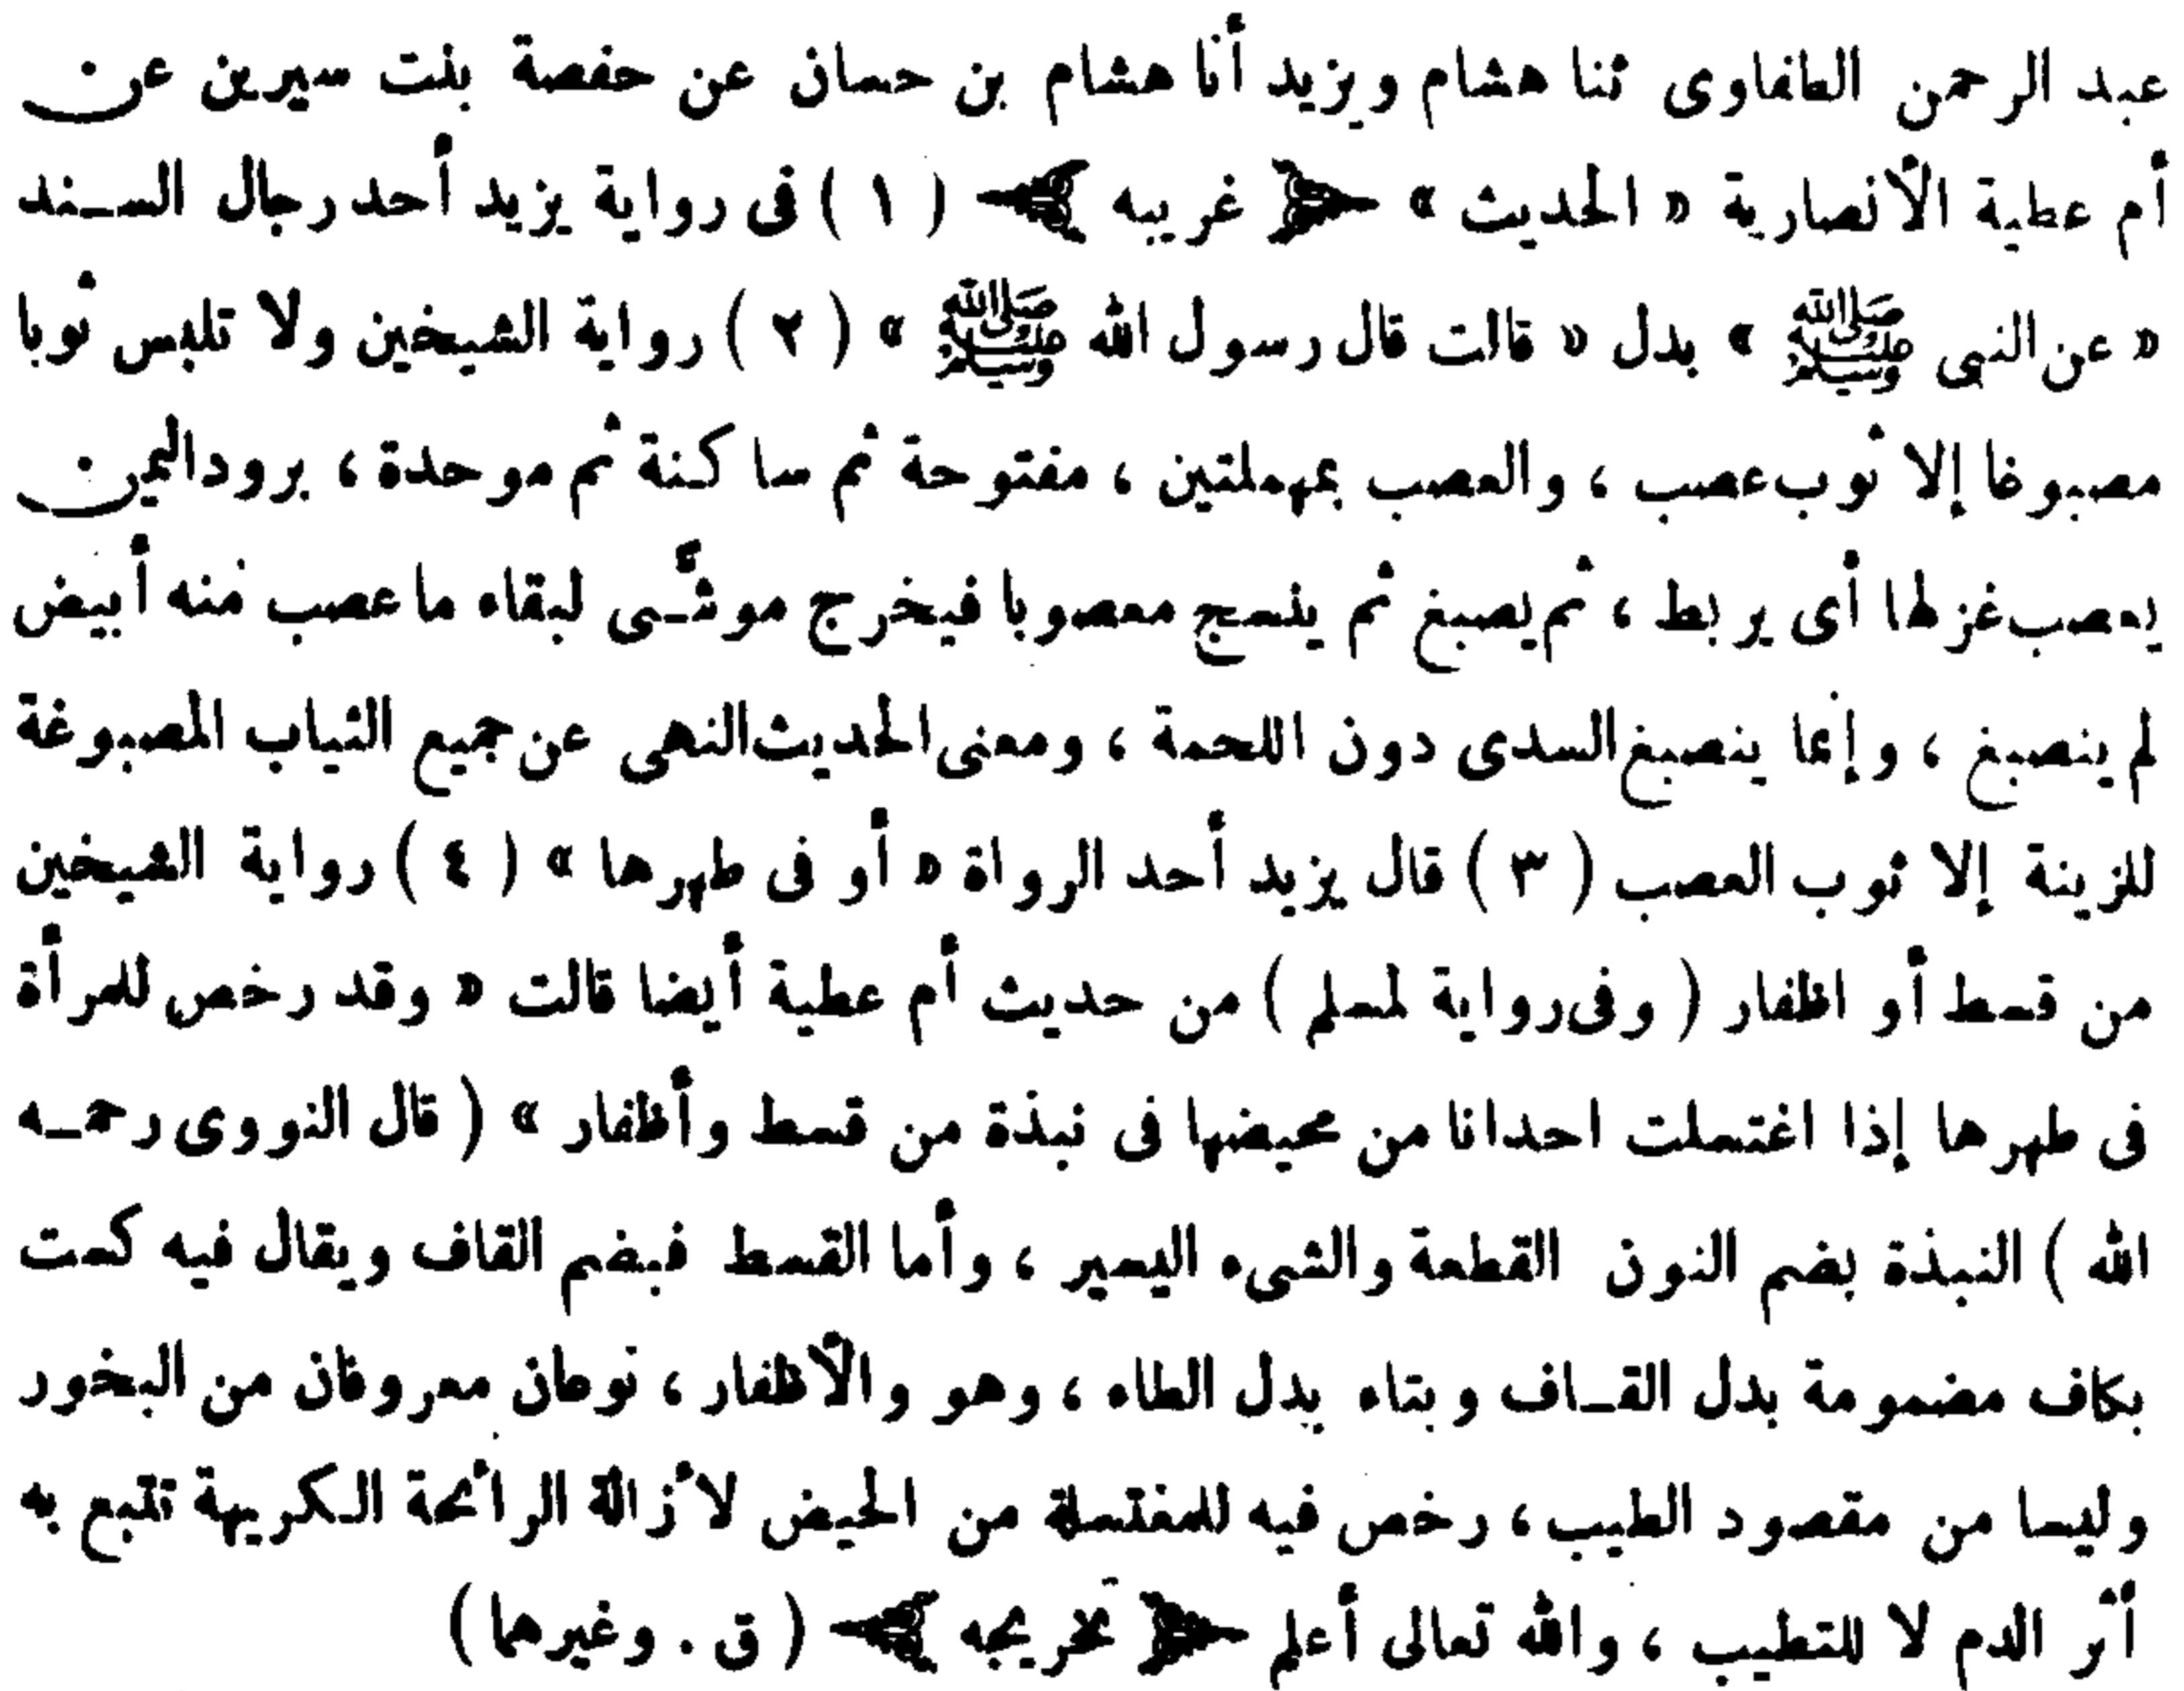 عبد الرحمن الطفاوى ثنا هشام ويزيد أنا هشام بن حسان عن حفصة بنت سيرين عن
أم عطية الأنصارية « الحديث » ﴿ غريبه ﴾ ( ١ ) فى رواية يزيد أحد رجال السند
« عن النبى ﷺ » بدل « قالت قال رسول الله ﷺ » ( ٢ ) رواية الشيخين ولا تلبس ثوبا
مصبوغا إلا ثوب عصب ، والعصب بمهملتين ، مفتوحة ثم ساكنة ثم موحدة ، برود اليمن
يعصب غزلها أى يربط ، ثم يصبغ ثم ينسج معصوبا فيخرج موشًى لبقاء ما عصب منه أبيض
لم ينصبغ ، وإنما ينصبغ السدى دون اللحمة ، ومعنى الحديث النهى عن جميع الثياب المصبوغة
للزينة إلا ثوب العصب ( ٣ ) قال يزيد أحد الرواة « أو فى طهرها » ( ٤ ) رواية الشيخين
من قسط أو اظفار ( وفى رواية لمسلم ) من حديث أم عطية أيضا قالت « وقد رخص للمرأة
فى طهرها إذا اغتسلت احدانا من محيضها فى نبذة من قسط وأظفار » ( قال النووى رحمه
الله ) النبذة بضم النون القطعة والشىء اليسير ، وأما القسط فبضم القاف ويقال فيه كست
بكاف مضمومة بدل القاف وبتاء بدل الطاء ، وهو والأظفار ، نوعان معروفان من البخور
وليسا من مقصود الطيب ، رخص فيه للمغتسلة من الحيض لأزالة الرائحة الكريهة تتبع به
أثر الدم لا للتطيب ، والله تعالى أعلم ﴿ تخريجه ﴾ ( ق . وغيرهما )